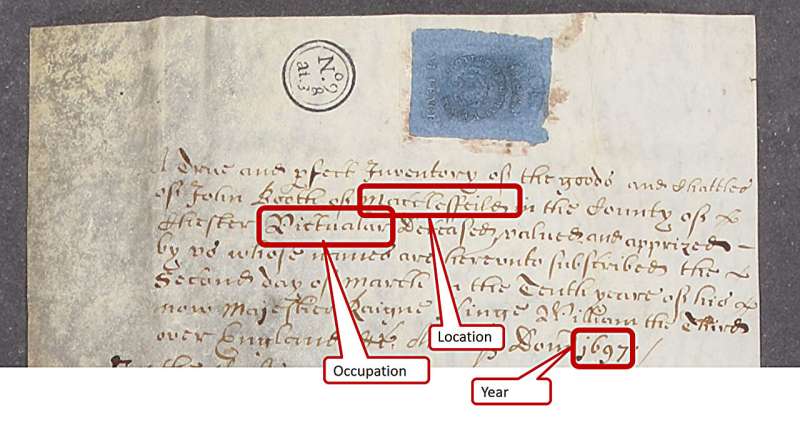 No. 9
at 3/8
A true and pfect Inventory of the goods and Chattles
of John Booth of Macclesfeild in the County of
Chester Victualar deceased valued and apprized
by vs whose names are herevnto subscribed the
Second day of March in the Tenth yeare of his
now Majesties Raigne Kinge William the Third
over England &c. Dom 1697
Location
Occupation
Year